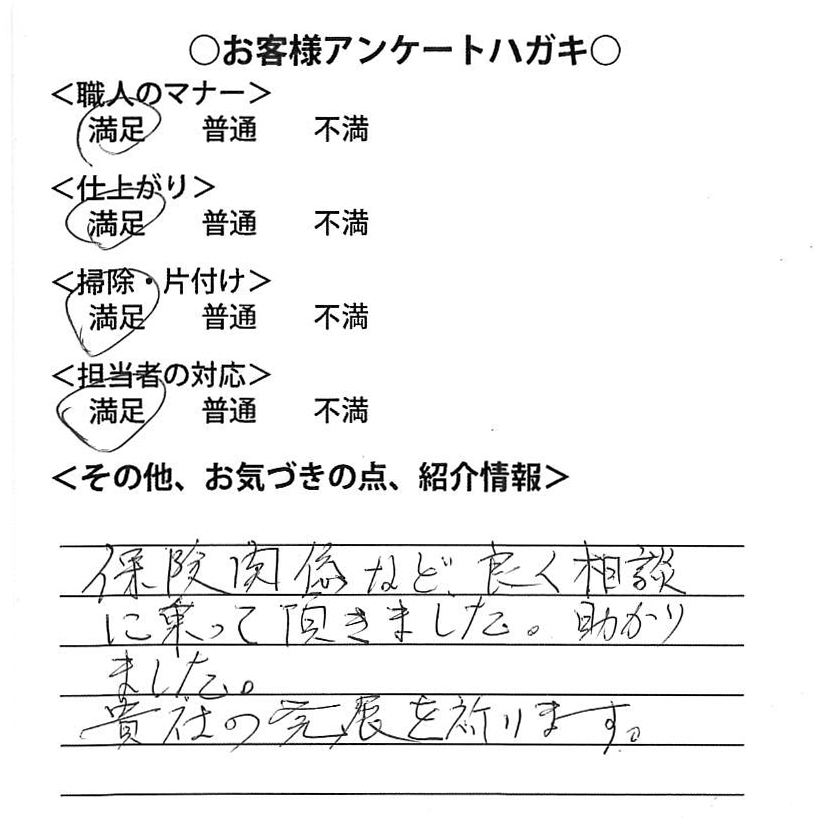 ○お客様アンケートハガキ○
＜職人のマナー＞
満足 普通 不満
＜仕上がり＞
満足 普通 不満
＜掃除・片付け＞
満足 普通 不満
＜担当者の対応＞
満足 普通 不満
＜その他、お気づきの点、紹介情報＞
保険関係など、良く相談
に乗って頂きました。助かり
ました。
貴社の発展を祈ります。